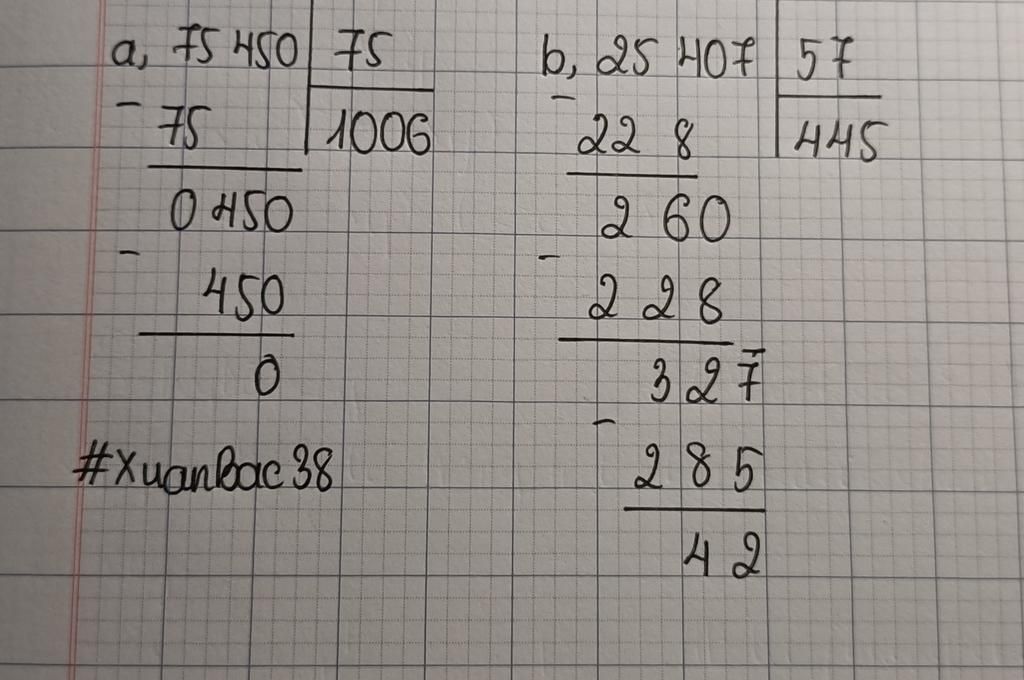 a, 75 450 75
- 75 1006
0 450
- 450
0
#XuanBac38
b, 25 407 57
- 22 8 445
2 60
- 2 28
327
- 285
42